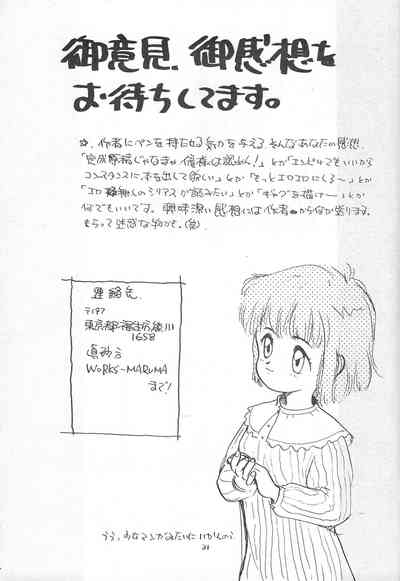 御意見、御感想を
お待ちしてます。
☆、作者にペンを持たせる気力を与える そんなあなたの感想、
「完成原稿じゃなきゃ は認めん!」とか「エンピツでもいいから
コンスタンスに本を出して欲しい」とか「もっとエロエロにしろ〜」とか
「エロ無しのシリアスが読みたい」とか「ギャグを描け〜」とか
何でもいいです。興味深い感想には作者からなにか送ります。
もらって迷惑な物かも。(笑)
連絡先
〒197
東京都福生市熊川
1658
WORKS-MARUMA
まで!
うう、少女マンガみたいにいかんのう